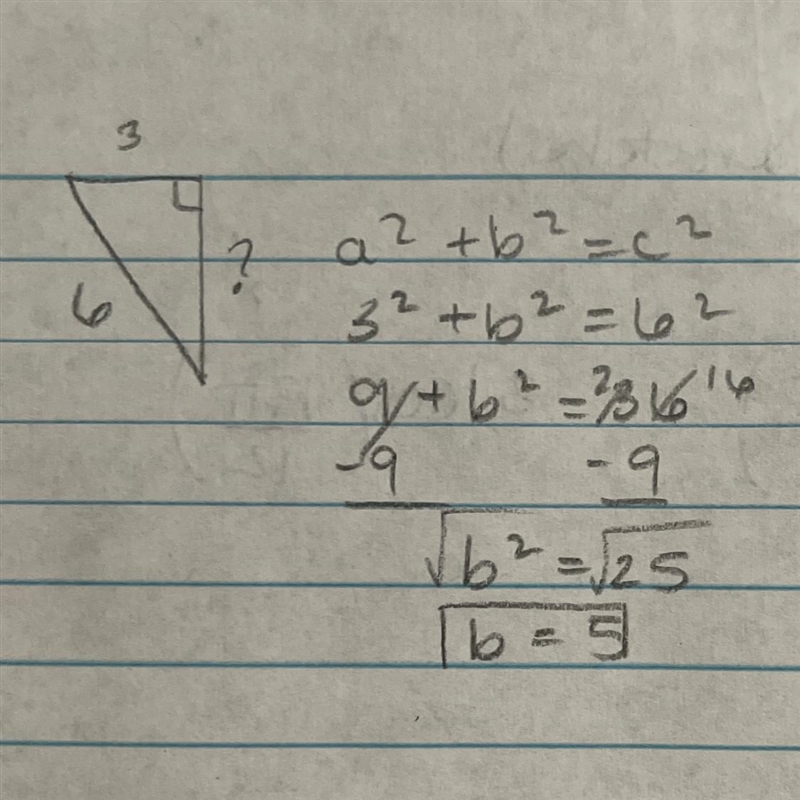 3
6
?
a² + b² = c²
3² + b² = 6²
9 + b² = ²36¹⁶
-9 -9
√b² = √25
b = 5